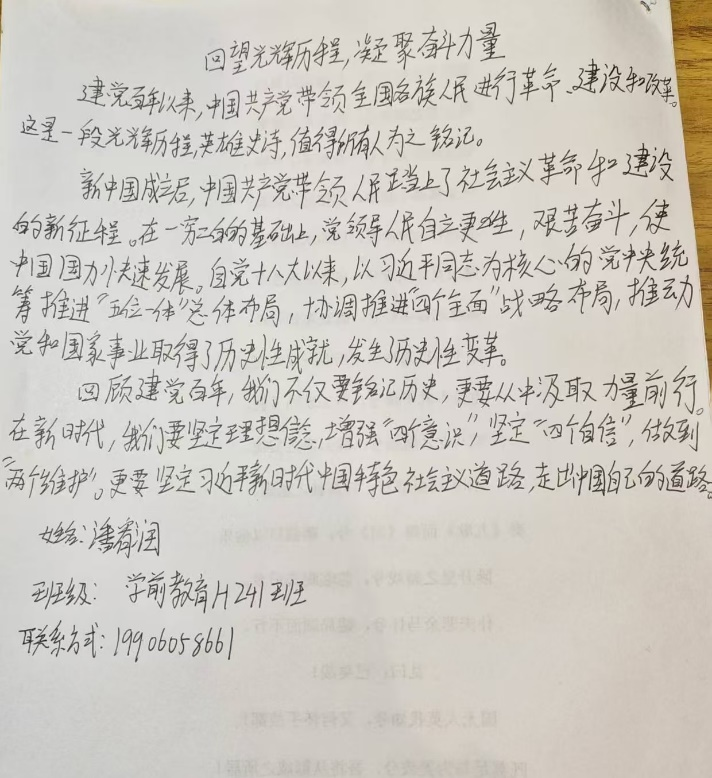 回望光辉历程,凝聚奋斗力量
建党百年以来,中国共产党带领全国各族人民进行革命、建设和改革。
这是一段光辉历程,英雄史诗,值得所有人为之铭记。
新中国成立后,中国共产党带领人民踏上了社会主义革命和建设
的新征程。在一穷二白的基础上,党领导人民自立更生,艰苦奋斗,使
中国国力快速发展。自党十八大以来,以习近平同志为核心的党中央统
筹推进“五位一体”总体布局,协调推进“四个全面”战略布局,推动
党和国家事业取得了历史性成就,发生了历史性变革。
回顾建党百年,我们不仅要铭记历史,更要从中汲取力量前行。
在新时代,我们要坚定理想信念,增强“四个意识”,坚定“四个自信”,做到
“两个维护”。更要坚定习近平新时代中国特色社会主义道路,走出中国自己的道路。
姓名:潘睿润
班级: 学前教育H241班
联系方式:19906058661